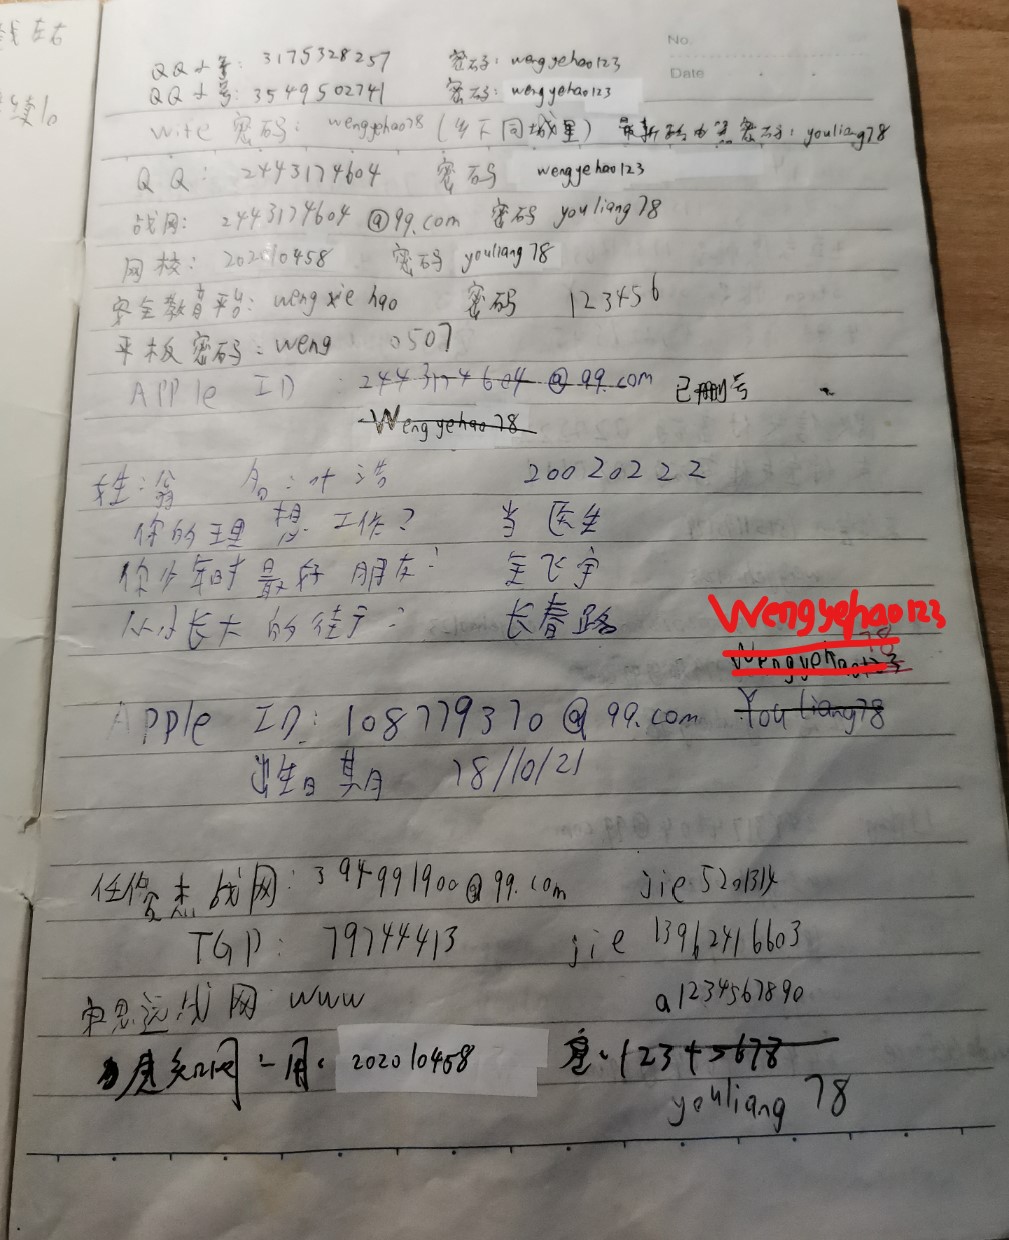 No.
Date
QQ小号: 3175328257 密码: wengyehao123
QQ小号: 3549502741 密码: wengyehao123
wife 密码: wengyehao78 (乡下同城里) 最新 密码: youliang78
QQ: 2443174604 密码 wengyehao123
战网: 2443174604@99.com 密码 youliang78
网校: 202010458 密码 youliang78
安全教育平台: wengxiehao 密码 123456
平板密码: weng 0507
Apple ID: 2443174604@99.com 已删号
Wengyehao78
姓:翁 名:叶浩 20020222
你的理想工作? 当医生
你少年时最好朋友: 全飞宇
从小长大的街户: 长春路
Wengyehao123
78
Wengyehao123
Apple ID: 108779370@99.com Youliang78
出生日期月 78/10/21
杰战网: 394991900@99.com jie5201314
TGP: 79744413 jie 13962416603
宋思远战网 www a1234567890
202010458 12345678
youliang78